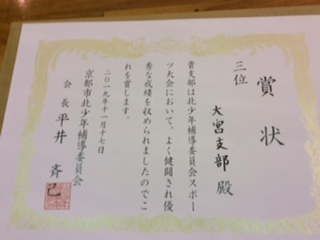 賞状
三位
大宮支部殿
貴支部は北少年補導委員会スポー
ツ大会において、よく健闘され優
秀な成績を収められましたのでこ
れを賞します。
二〇一九年十一月十七日
京都市北少年補導委員会
会長 平井 斉己